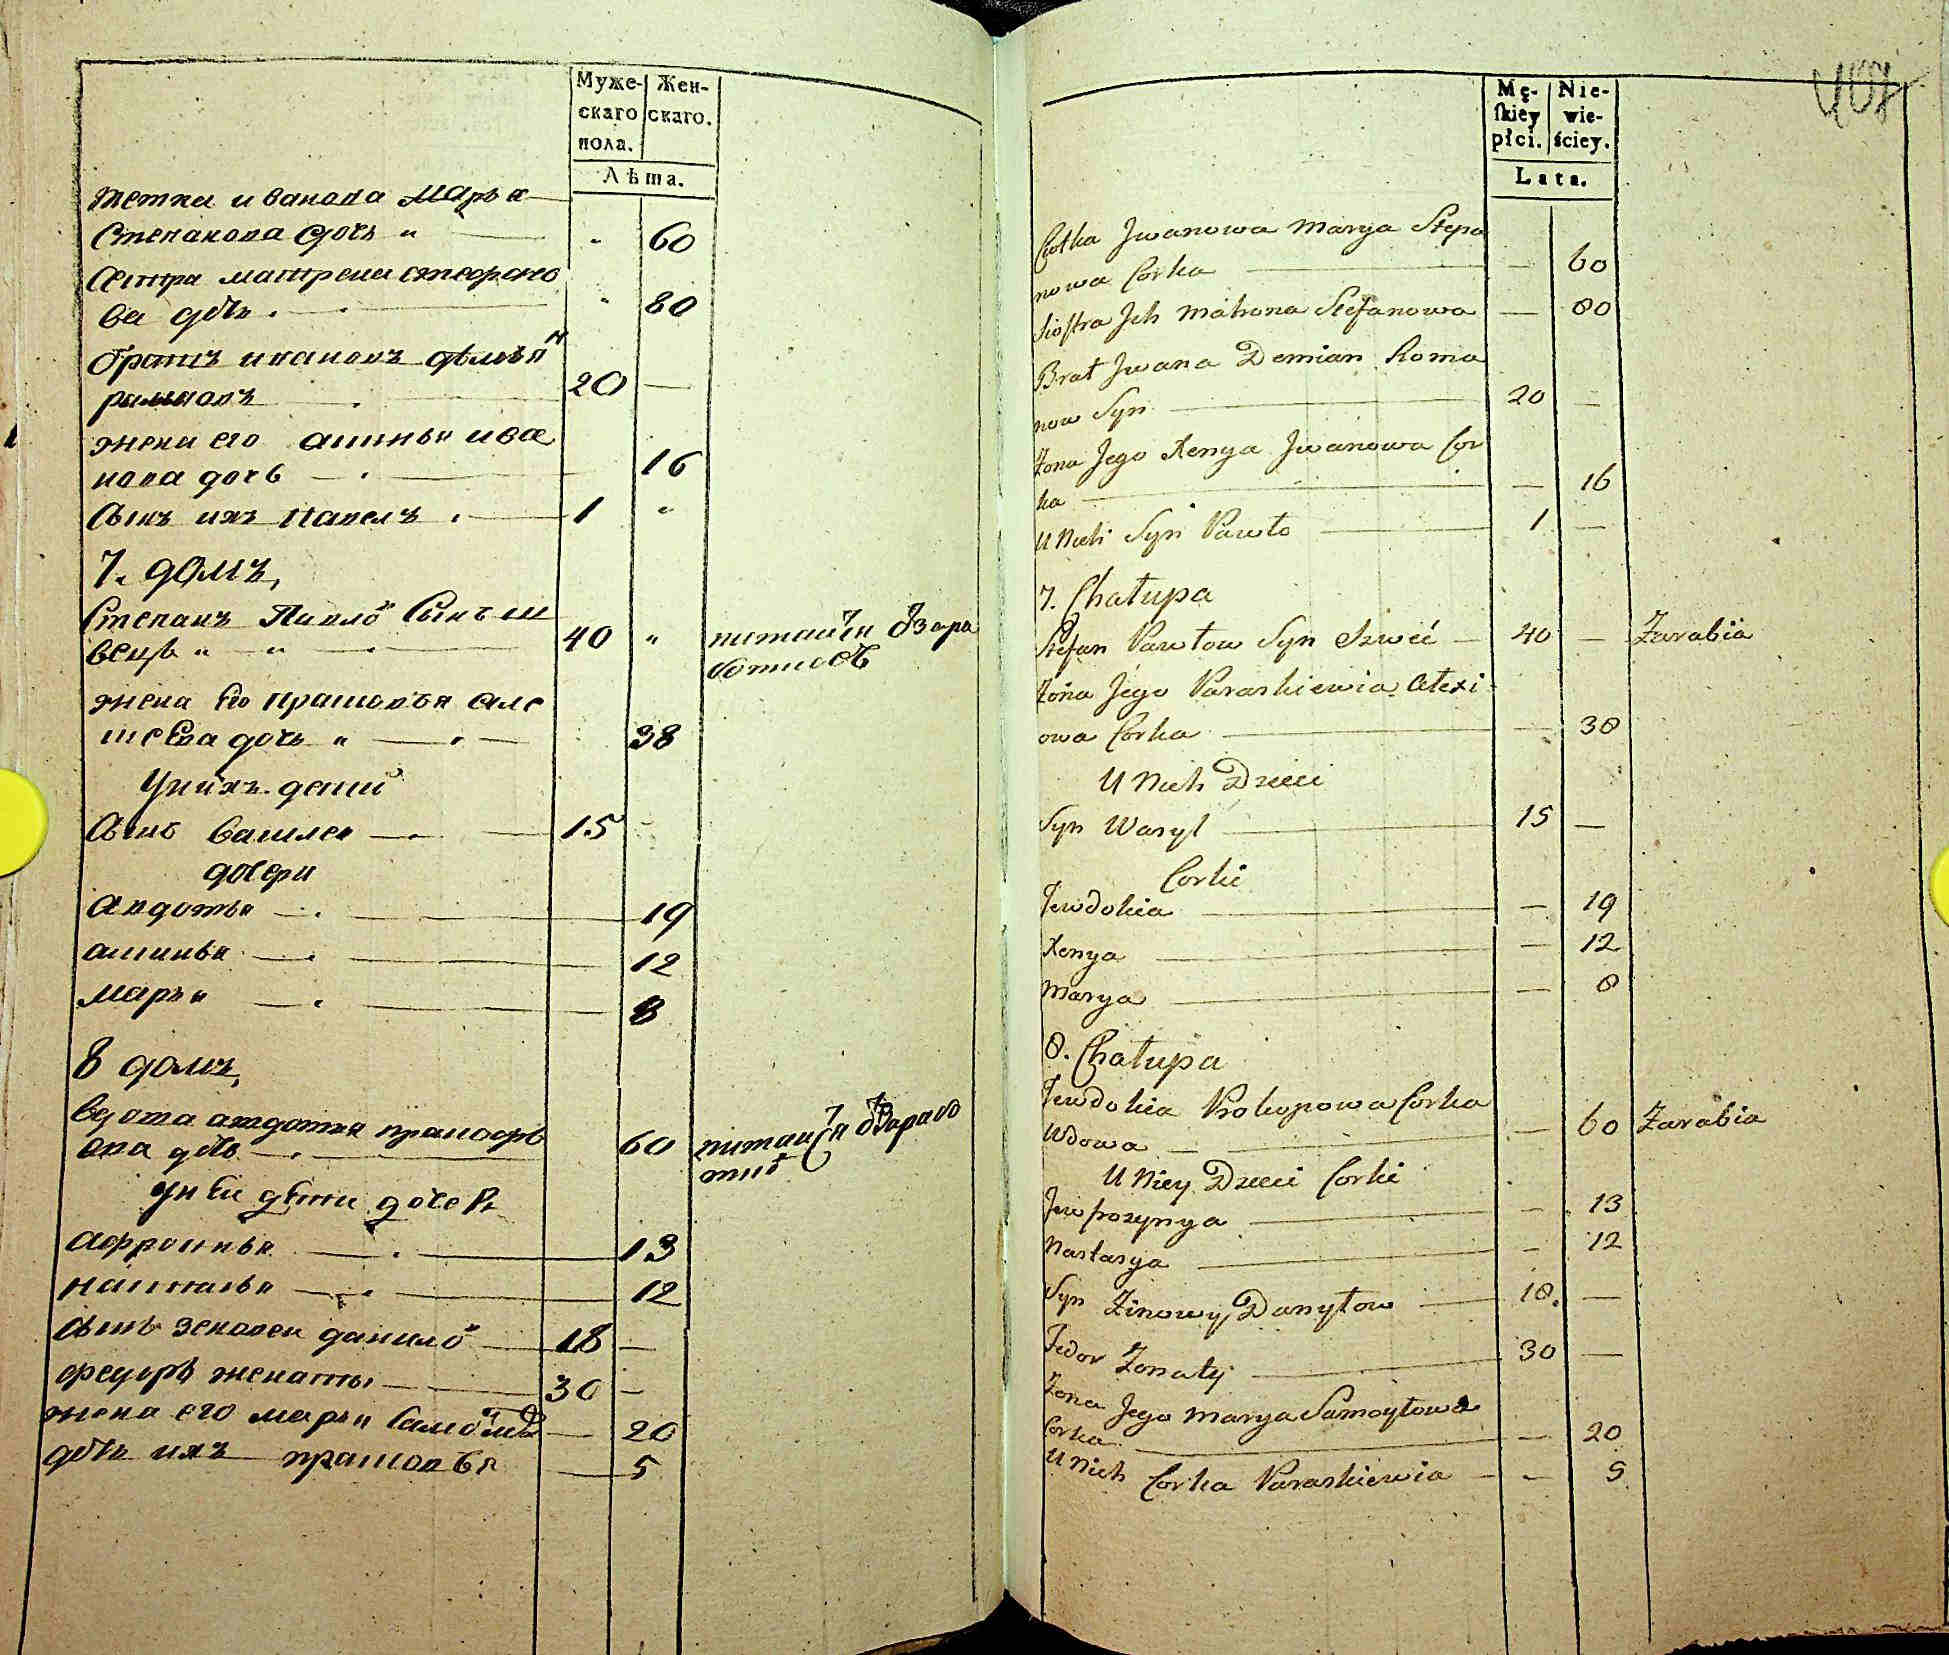 Муже-
скаго
пола.
Жен-
скаго.
Лѣта.
тетка иванова Марья
Степанова дочь " — " 60
Сестра матрена стефано
ва дочь . — " 80
братъ ивановъ дѣмьян
романовъ — 20 —
жена его аксинья ива
нова дочь — 16
Сынъ ихъ павелъ . — 1 "
7. домъ,
Степанъ Павлов Сынъ ш
вецъ " — " — 40 " питаится отзара
боткось
жена Его прасковья але
ксеева дочь " — 38
Унихъ детей
Сынъ василей — 15 —
дочери
Авдотья — 19
аксинья — 12
Марья — 8
8 домъ,
вдова авдотья прокофь
ева дочь — 60 питаится отзарабо
ткось
унеи дѣти дочеръ
афросинья — 13
настасья — 12
Сынъ зеновеи данилов — 18 —
федоръ женатъ — 30 —
жена его марья Самоилова — 20
дочь ихъ прасковья — 5
407
Mę-
skiey
płci.
Nie-
wie-
ściey.
Lata.
Ciotka Jwanowa Marya Stepa
nowa Corka — — 60
Siostra Jch Matrona Stefanowa — 80
Brat Jwana Demian Roma
now Syn — 20 —
Żona Jego Xenya Jwanowa Cor
ka — — 16
U Nich Syn Pawło — 1 —
7. Chałupa
Stefan Pawłow Syn Szwiec — 40 — Zarabia
Żona Jego Paraskiewia Alexi
owa Corka — — 38
U Nich Dzieci
Syn Wasyl — 15 —
Corki
Jewdokia — — 19
Xenya — — 12
Marya — — 8
8. Chałupa
Jewdokia Prokopowa Corka
Wdowa — — 60 Zarabia
U Niey Dzieci Corki
Jewfrozynya — — 13
Nastasya — — 12
Syn Zinowy Danyłow — 18. —
Fedor Żonaty — 30 —
Żona Jego Marya Samoyłowa
Corka — — 20
U Nich Corka Paraskiewia — — 5